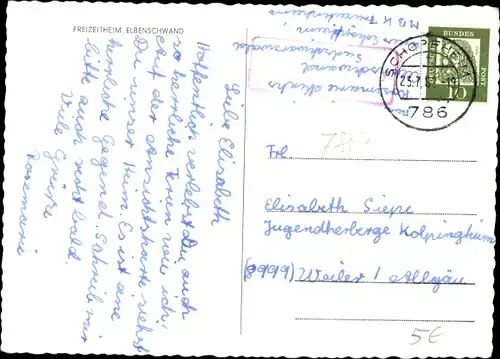 FREIZEITHEIM ELBENSCHWAND
Liebe Elisabeth
Hoffentlich verlebst Du auch
so herrliche Ferien wie ich.
Auf der Ansichtskarte siehst
Du unser Heim. Es ist eine
herrliche Gegend. Schreib mir
bitte auch recht bald.
Viele Grüße
Rosemarie
Rosemarie
786
SCHOPFHEIM
786
DEUTSCHE
BUNDES
POST
10
Frl.
Elisabeth Siepe
Jugendherberge Kolpingheim
(8999) Weiler / Allgäu
5€